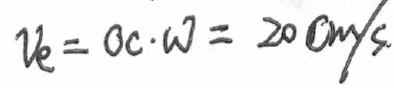 Ve = OC·ω = 20 cm/s.